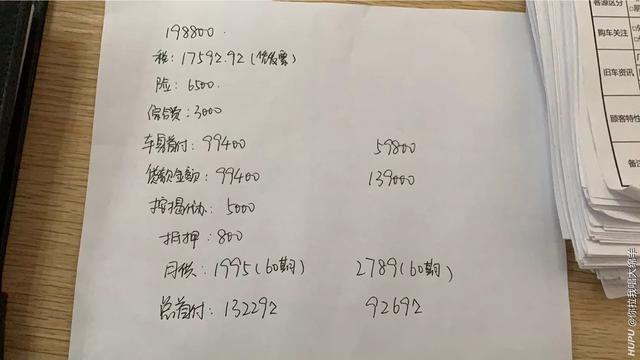 198800.
税：17592.92（凭发票）
险：6500.
保合费：3000
车身首付：99400 59800
贷款金额：99400 139000
按揭代办：5000
抵押：800
月税：1995（60期） 2789（60期）
总首付：132292 92692
客源区分
购车关注
旧车资讯
顾客特性
备注
HUPU @你拉我唱大绵羊